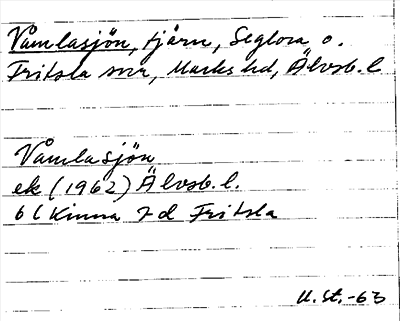 Våmlasjön, tjärn, Seglora o.
Fritsla snr, Marks hd, Älvsb. l.
Våmlasjön
ek (1962) Älvsb. l.
6 l Kinna 7 d Fritsla
U. St. -63